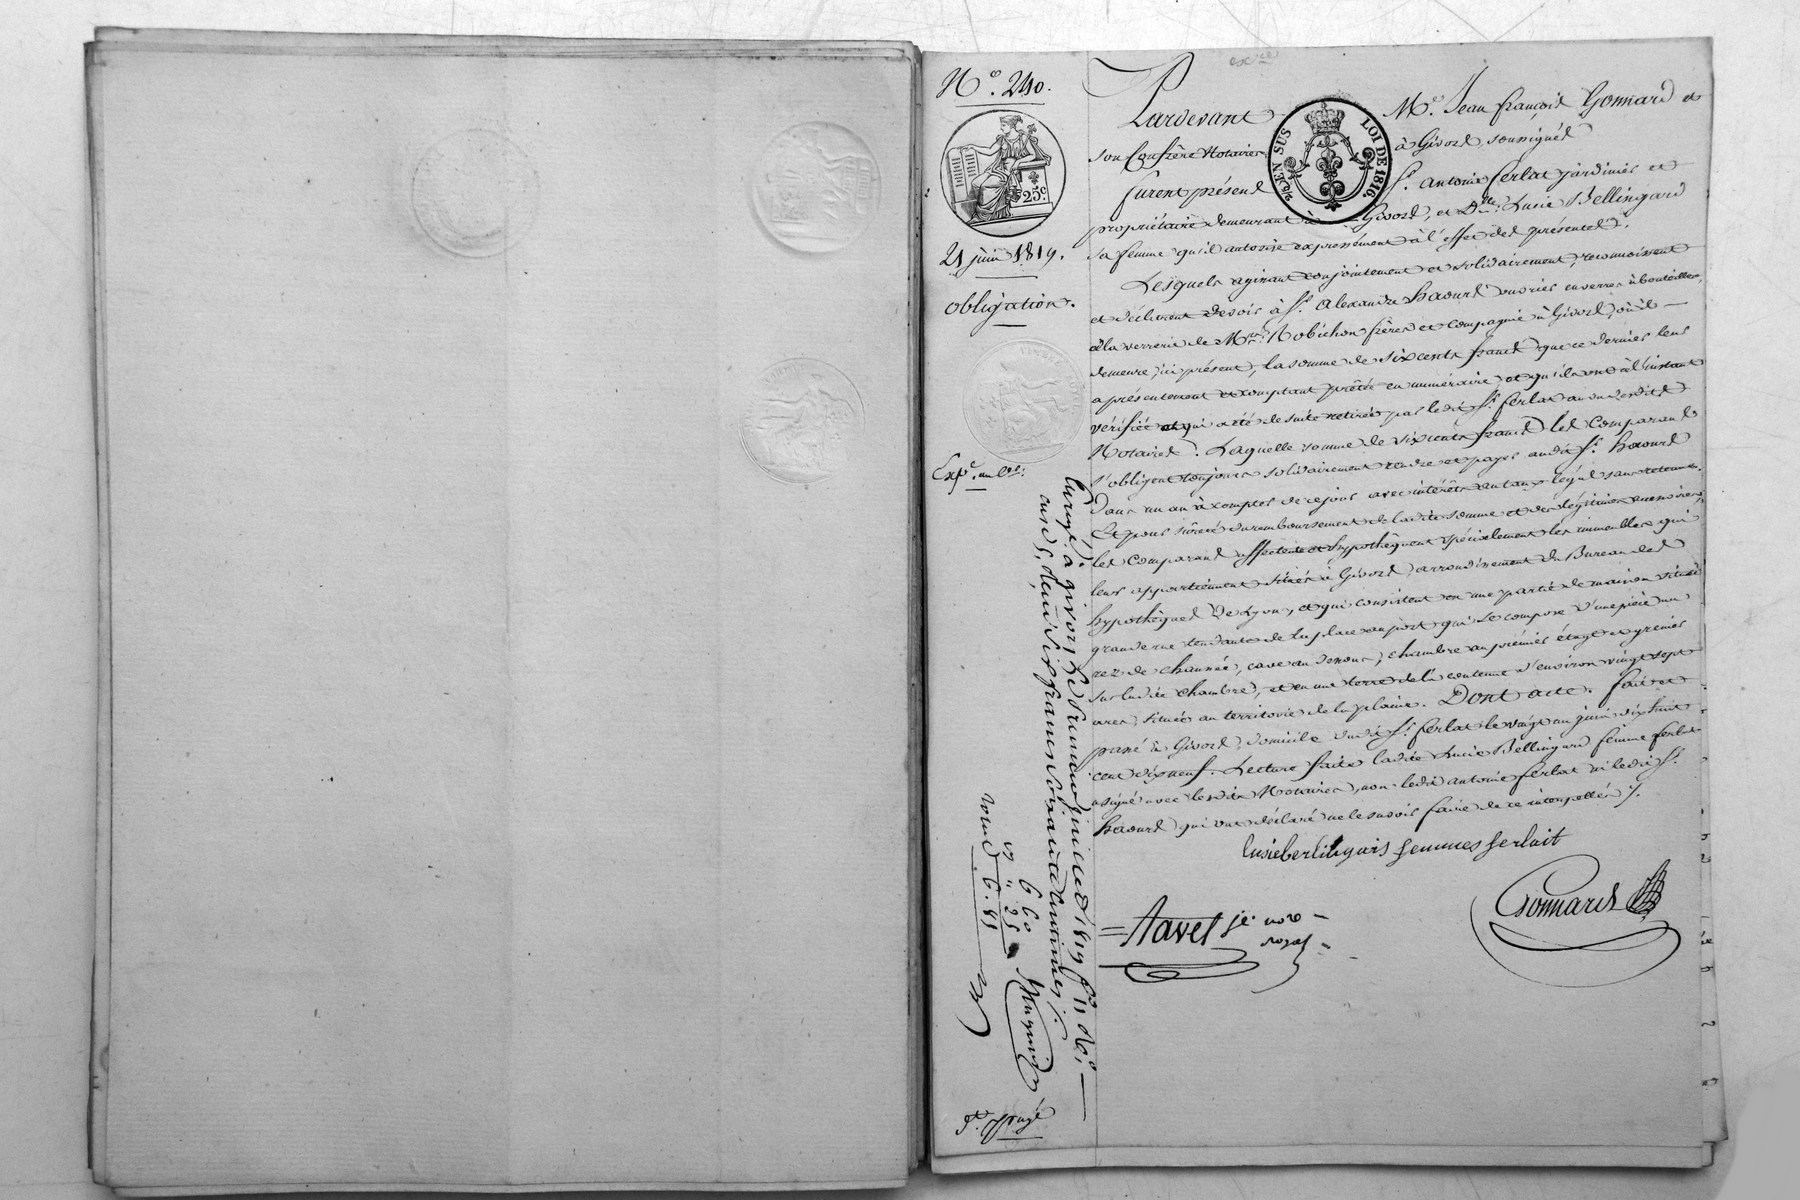 N.° 240.
25c.
21 juin 1819.
obligation.
Exp.e
2/6 EN SUS
LOI DE 1816.
Pardevant Me. Jean françois Gonnard et
son Confrère Notaires à Givors, soussignés
furent présens Sr. antoine ferlat jardinier et
propriétaire demeurant à Givors, et Dlle. Lucie Bellingard
sa femme qu'il autorise expressément à l'effet des présentes.
Lesquels agissant conjointement et solidairement, reconnoissent
et déclarent devoir à Sr. alexandre haours ouvrier en verres à bouteilles,
à la verrerie de Mrs. Robichon frères et compagnie à Givors, où il
demeure, ici présent, la somme de six cents francs que ce dernier leur
a présentement et comptant prêtée en numéraire, et qu'ils ont à l'instant
vérifiée et qui a été de suite retirée par ledit Sr. ferlat au vu desdits
Notaires. Laquelle somme de six cents francs les comparans
s'obligent toujours solidairement rendre et payer audit Sr. haours
dans un an à compter de ce jour avec intérêts au taux légal sans retenue.
Et pour sûreté du remboursement de ladite somme et des légitimes accessoires,
les comparans affectent et hypothèquent spécialement les immeubles qui
leur appartiennent situés à Givors, arrondissement du Bureau des
hypothèques de Lyon, et qui consistent en une partie de maison située
grande rue tendante de la place au port qui se compose d'une pièce au
rez de chaussée, cave au dessous, chambre au premier étage et grenier
sur ladite chambre, et en une terre de la contenue d'environ vingt sept
ares, située au territoire de la plaine. Dont acte. fait et
passé à Givors, domicile dudit Sr. ferlat le vingt un juin dix huit
cent dix neuf. Lecture faite ladite Lucie Bellingard femme ferlat
a signé avec lesdits Notaires, non ledit antoine ferlat ni ledit Sr.
haours qui ont déclaré ne le savoir faire de ce interpellés /.
lusieberlingais femmes ferlait
Tavel je. nore
royal
Gonnard
Enregé. à givors le premier juillet 1819 fo. 11
six francs soixante centimes /.
6 60
" 25
6. 85